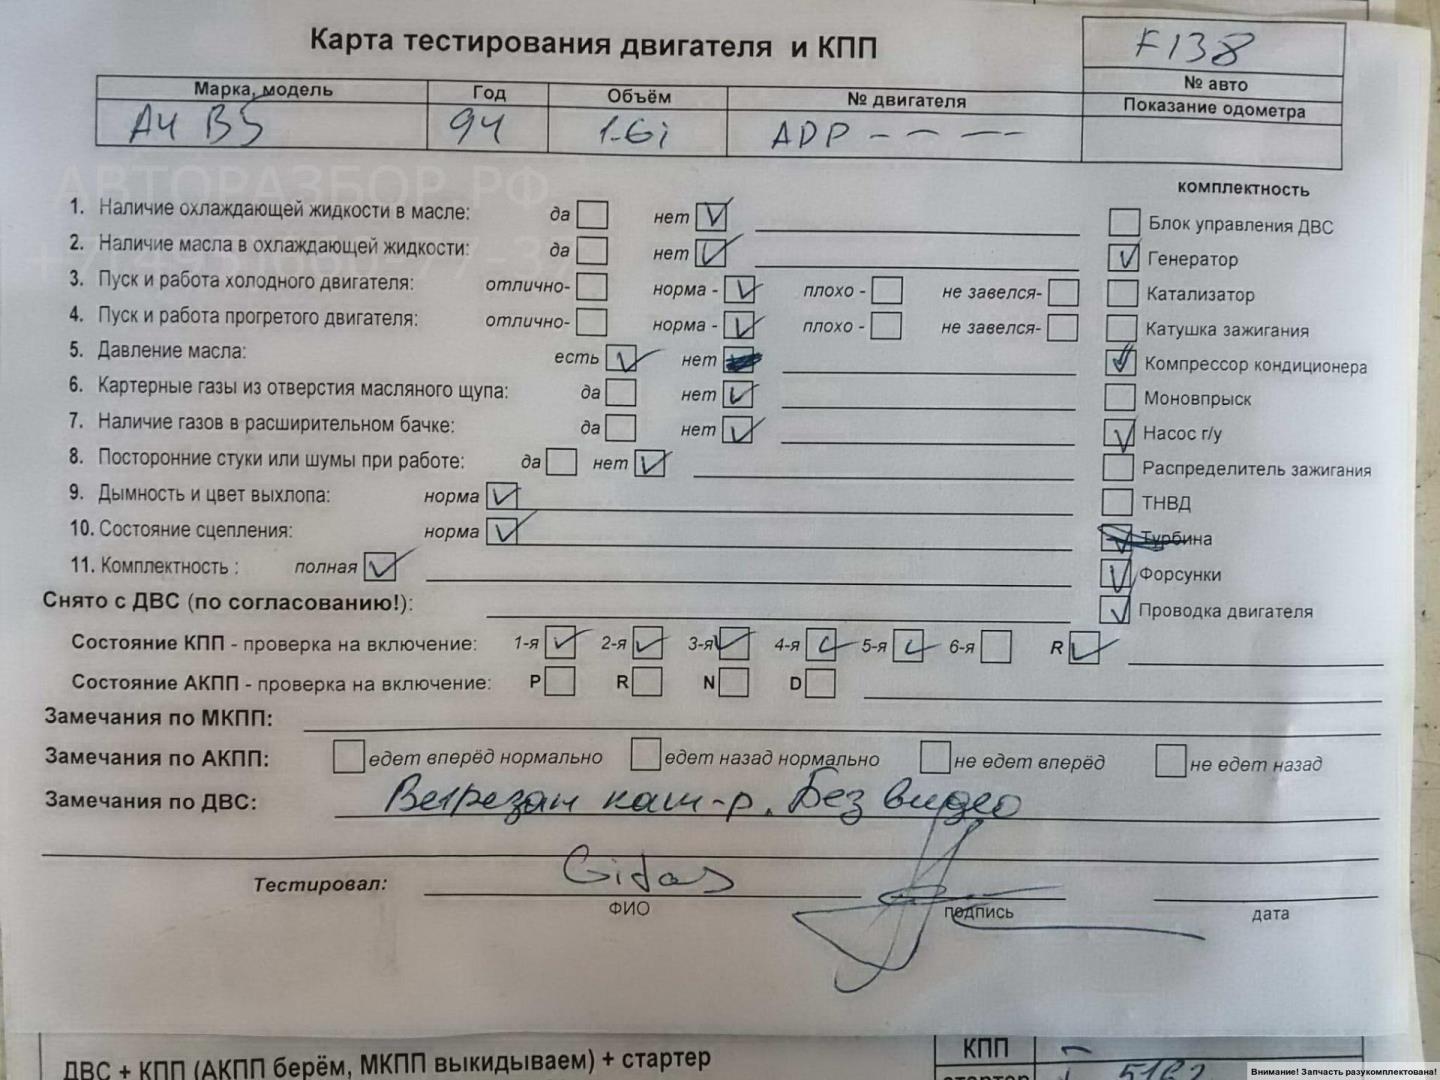 Карта тестирования двигателя и КПП
F138
№ авто
Марка, модель Год Объём № двигателя Показание одометра
A4 B5 94 1.6i ADP - - - -
АВТОРАЗБОР.РФ
комплектность
1. Наличие охлаждающей жидкости в масле: да нет
Блок управления ДВС
2. Наличие масла в охлаждающей жидкости: да нет
Генератор
3. Пуск и работа холодного двигателя: отлично- норма - плохо - не завелся-
Катализатор
4. Пуск и работа прогретого двигателя: отлично- норма - плохо - не завелся-
Катушка зажигания
5. Давление масла: есть нет
Компрессор кондиционера
6. Картерные газы из отверстия масляного щупа: да нет
Моновпрыск
7. Наличие газов в расширительном бачке: да нет
Насос г/у
8. Посторонние стуки или шумы при работе: да нет
Распределитель зажигания
9. Дымность и цвет выхлопа: норма
ТНВД
10. Состояние сцепления: норма
Турбина
11. Комплектность : полная
Форсунки
Снято с ДВС (по согласованию!):
Проводка двигателя
Состояние КПП - проверка на включение: 1-я 2-я 3-я 4-я 5-я 6-я R
Состояние АКПП - проверка на включение: P R N D
Замечания по МКПП:
Замечания по АКПП: едет вперёд нормально едет назад нормально не едет вперёд не едет назад
Замечания по ДВС: Вырезан кат-р. Без видео
Тестировал: Gidas
ФИО подпись дата
ДВС + КПП (АКПП берём, МКПП выкидываем) + стартер
КПП -
стартер
Внимание! Запчасть разукомплектована!